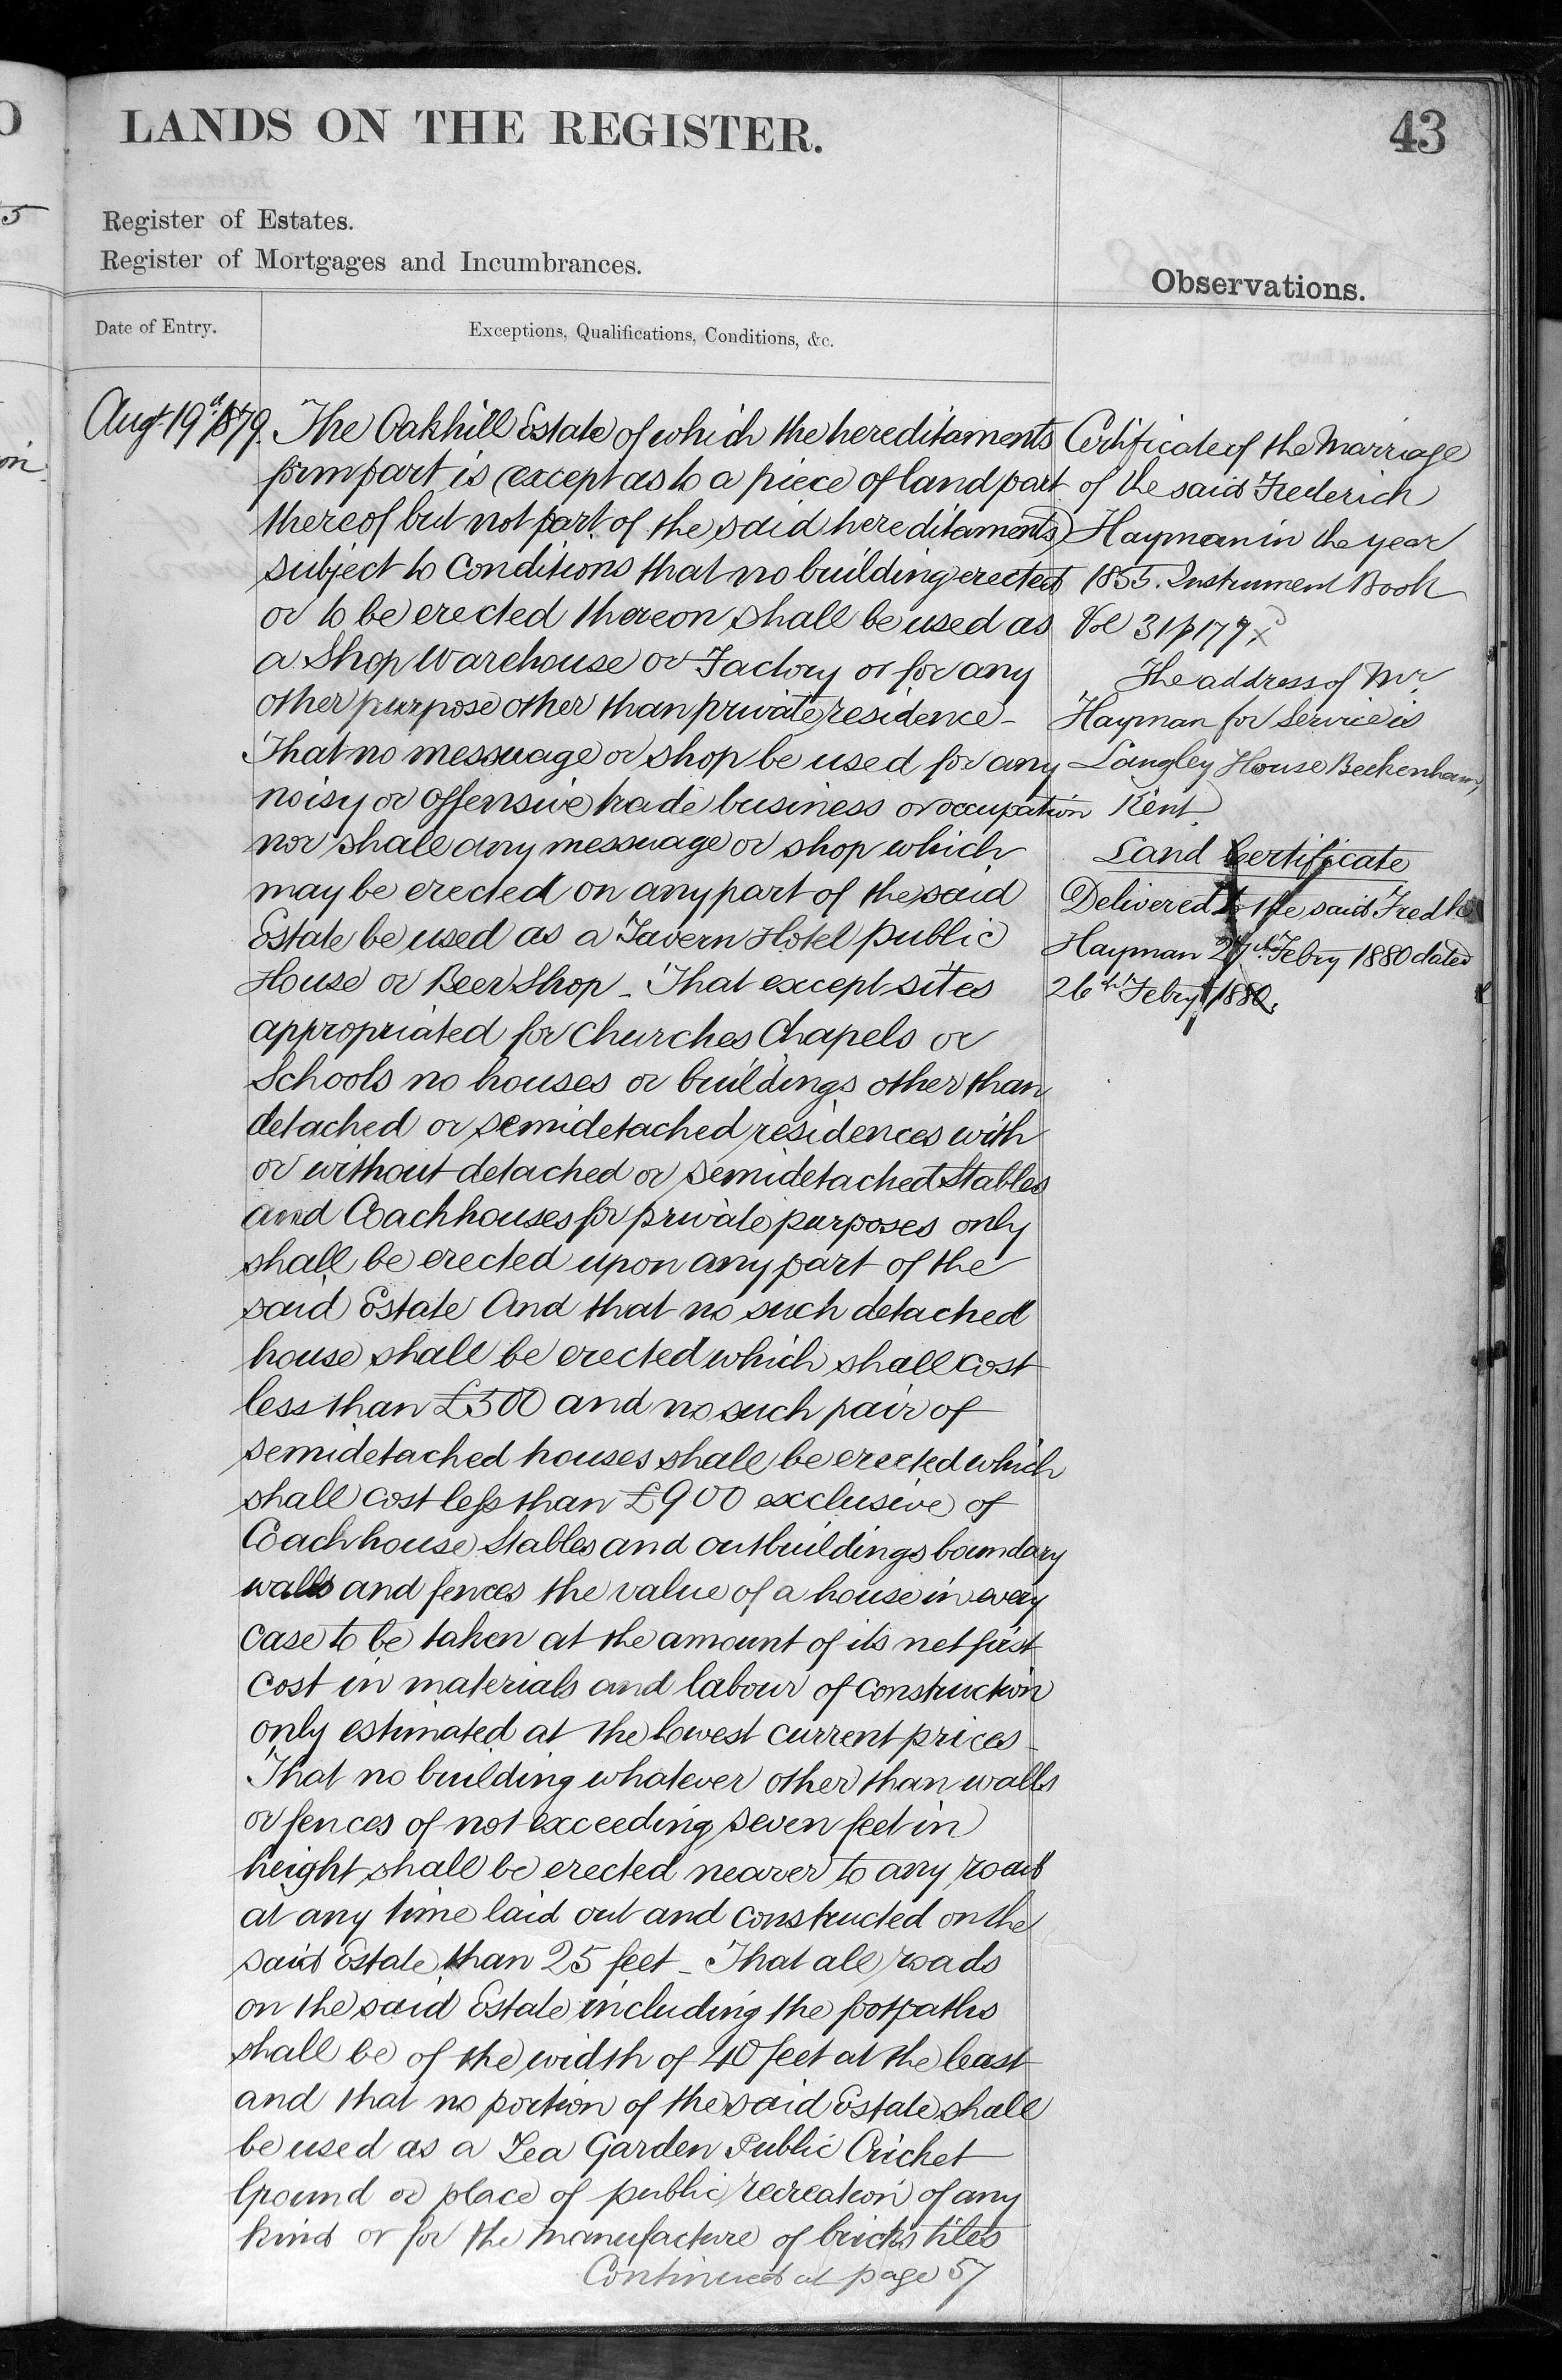 LANDS ON THE REGISTER.
43
Register of Estates.
Register of Mortgages and Incumbrances.
Observations.
Date of Entry.
Exceptions, Qualifications, Conditions, &c.
Augt 19th 1879.
The Oakhill Estate of which the hereditaments
form part is (except as to a piece of land part
thereof but not part of the said hereditaments)
subject to Conditions that no building erected
or to be erected thereon shall be used as
a Shop Warehouse or Factory or for any
other purpose other than private residence -
That no messuage or shop be used for any
noisy or offensive trade business or occupation
nor shall any messuage or shop which
may be erected on any part of the said
Estate be used as a Tavern Hotel public
House or Beer Shop - That except sites
appropriated for Churches Chapels or
Schools no houses or buildings other than
detached or semidetached residences with
or without detached or semidetached Stables
and Coachhouses for private purposes only
shall be erected upon any part of the
said Estate And that no such detached
house shall be erected which shall cost
less than £500 and no such pair of
semidetached houses shall be erected which
shall cost less than £900 exclusive of
Coachhouse Stables and outbuildings boundary
walls and fences the value of a house in every
case to be taken at the amount of its net first
cost in materials and labour of construction
only estimated at the lowest current prices -
That no building whatever other than walls
or fences of not exceeding seven feet in
height shall be erected nearer to any road
at any time laid out and constructed on the
said Estate than 25 feet - That all roads
on the said Estate including the footpaths
shall be of the width of 40 feet at the least
and that no portion of the said Estate shall
be used as a Tea Garden Public Cricket
Ground or place of public recreation of any
kind or for the manufacture of bricks tiles
Continued at page 57
Certificate of the Marriage
of the said Frederick
Hayman in the year
1855. Instrument Book
Vol 31 p 179
The address of Mr
Hayman for Service is
Langley House Beckenham
Kent
Land Certificate
Delivered to the said Fredk
Hayman 27th Febry 1880 dated
26th Febry 1880.